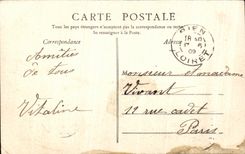 CARTE POSTALE
Tous les pays étrangers n'acceptent pas la correspondance au recto.
Se renseigner à la Poste.
Correspondance
Adresse
GIEN
LOIRET
Amitiés
de tous
Vitaline
Monsieur et madame
Vivant
11 rue Cadet
Paris